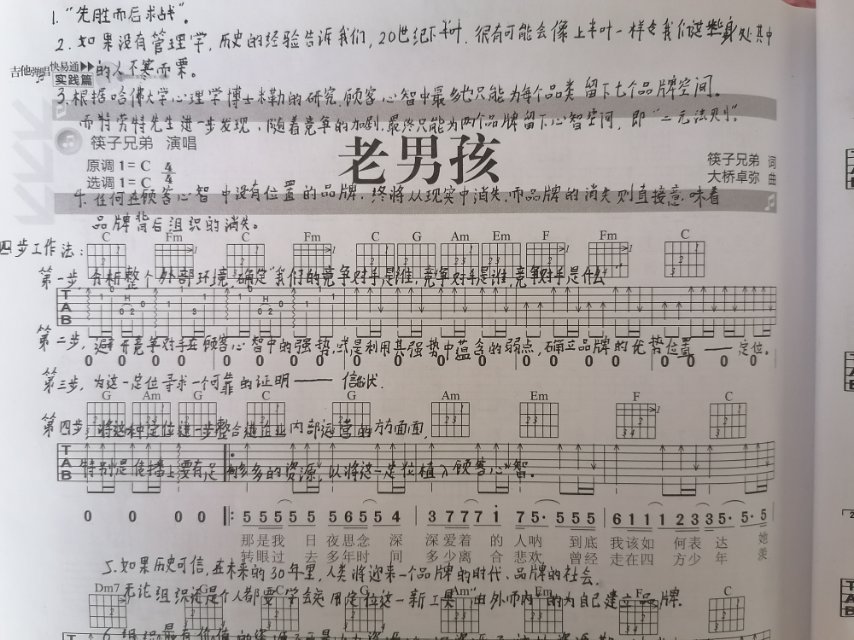 1. “先胜而后求战”。
2. 如果没有管理学，历史的经验告诉我们，20世纪下半叶，很有可能会像上半叶一样令我们这些身处其中
的人不寒而栗。
吉他弹唱 快易通
实践篇
3. 根据哈佛大学心理学博士米勒的研究，顾客心智中最多也只能为每个品类留下七个品牌空间。
而特劳特先生进一步发现，随着竞争的加剧，最终只能为两个品牌留下心智空间，即“二元法则”。
筷子兄弟 演唱
老男孩
筷子兄弟 词
原调 1=C 4/4
大桥卓弥 曲
选调 1=C 4/4
4. 任何在顾客心智中没有位置的品牌，终将从现实中消失，而品牌的消失则直接意味着
品牌背后组织的消失。
四步工作法：
C Fm C Fm C G Am Em F Fm C
第一步，分析整个外部环境，确定“我们的竞争对手是谁，竞争对手是谁，竞争对手是什么
T A B
第二步，避开竞争对手在顾客心智中的强势，或是利用其强势中蕴含的弱点，确立品牌的优势位置——定位。
第三步，为这一定位寻求一个可靠的证明——信任状.
G Am G C G Am Em F C
第四步，将这种定位进一步整合进企业内部运营的方方面面，
T A B
特别是传播上要有足够多的资源，以将这一定位植入顾客心智。
0 0 0 0 5 5 5 5 5 3 5 6 5 4 3 7 7 7 1 7 5· 5 5 5 6 1 1 1 1 2 3 3 5· 5· 5
那是我 日夜思念 深 深爱着 的 人呐 到底 我该如 何表 达 她
转眼过 去多年时 间 多少离 合 悲欢 曾经 走在四 方少 年 羡
5. 如果历史可信，在未来的30年里，人类将迎来一个品牌的时代、品牌的社会.
Dm7 G C G Am Em F C
无论组织还是个人都要学会运用定位这一新工具，由外而内的为自己建立品牌.